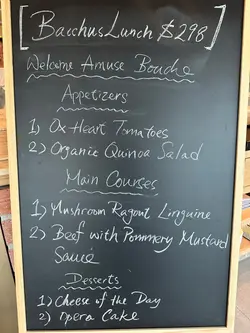 [Bacchus Lunch $298]
Welcome Amuse Bouche
Appetizers
1) Ox Heart Tomatoes
2) Organic Quinoa Salad
Main Courses
1) Mushroom Ragout Linguine
2) Beef with Pommery Mustard
Sauce
Desserts
1) Cheese of the Day
2) Opera Cake